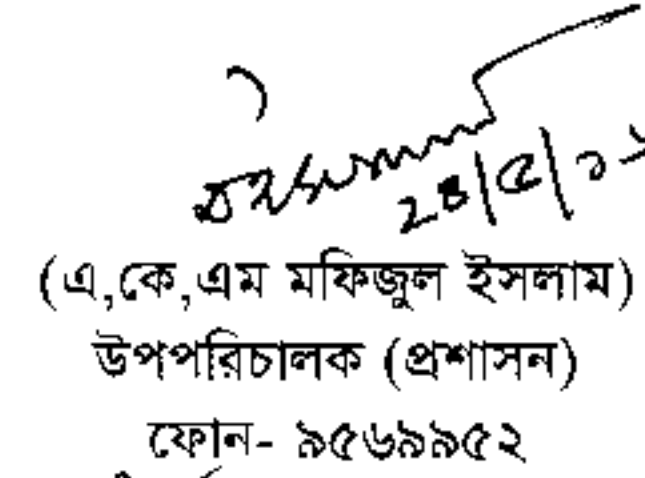 (এ,কে,এম মফিজুল ইসলাম)
উপপরিচালক (প্রশাসন)
ফোন- ৯৫৬৯৯৫২